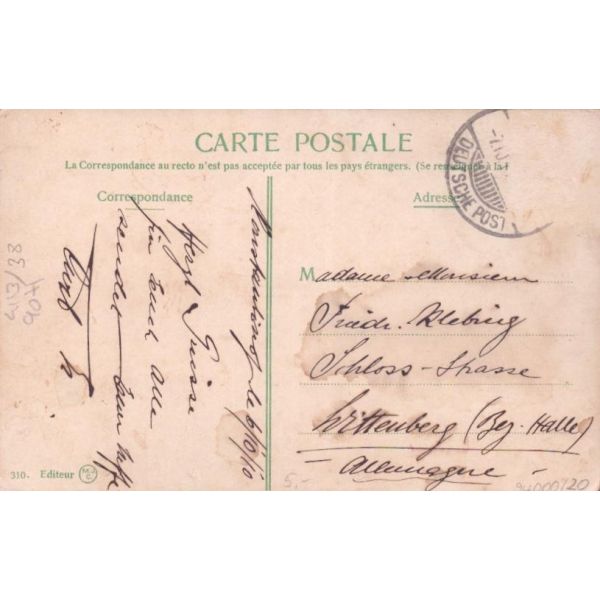 CARTE POSTALE
La Correspondance au recto n'est pas acceptée par tous les pays étrangers. (Se renseigner à la
Correspondance
Adresse
DEUTSCHE POST
le 6/10/10
Herzl. Grüsse
für Euch Alle
sendet
Madame Monsieur
Friedr. Klebing
Schloss-strasse
Wittenberg (Bez. Halle)
- Allemagne -
310. Editeur MJC
4113/38
907/
5,-
94000720